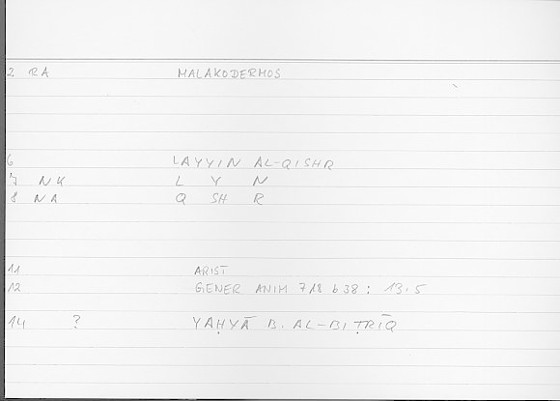 2 RA MALAKODERMOS
6 LAYYIN AL-QISHR
7 NK L Y N
8 NA Q SH R
11 ARIST
12 GENER ANIM 718 b 38 : 13.5
14 ? YAḤYĀ B. AL-BIṬRĪQ